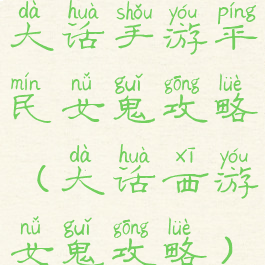 dà huà shǒu yóu píng
大话手游平
mín nǚ guǐ gōng lüè
民女鬼攻略
dà huà xī yóu
（大话西游
nǚ guǐ gōng lüè
女鬼攻略）